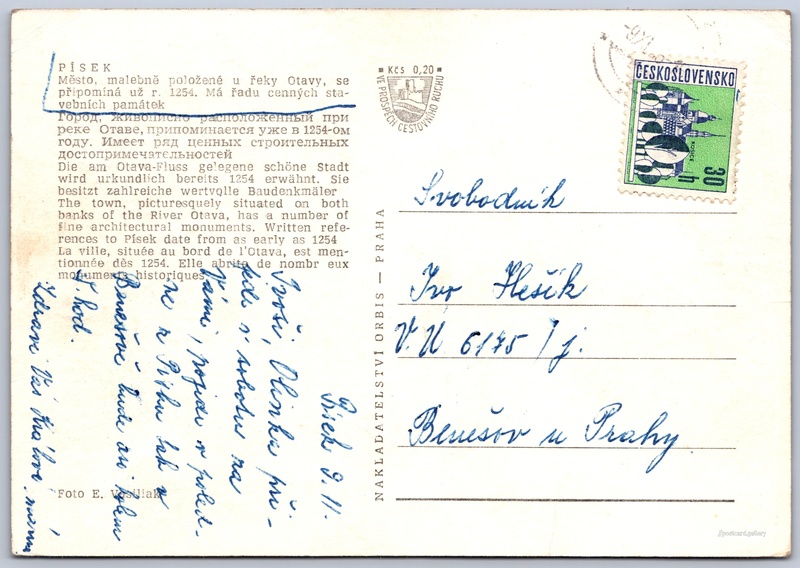 PÍSEK
Město, malebně položené u řeky Otavy, se
připomíná už r. 1254. Má řadu cenných sta-
vebních památek
Город, живописно расположенный при
реке Отаве, припоминается уже в 1254-ом
году. Имеет ряд ценных строительных
достопримечательностей
Die am Otava-Fluss gelegene schöne Stadt
wird urkundlich bereits 1254 erwähnt. Sie
besitzt zahlreiche wertvolle Baudenkmäler
The town, picturesquely situated on both
banks of the River Otava, has a number of
fine architectural monuments. Written refe-
rences to Písek date from as early as 1254
La ville, située au bord de l'Otava, est men-
tionnée dès 1254. Elle abrite de nombr eux
monuments historiques
Písek 9.11.
Ivoši, Olinka při-
jede v sobotu za
Vámi, pojede v poled-
ne z Písku tak v
Benešově bude asi kolem
hod.
Zdraví Vás Královi
Foto E. Vasiliak
Kčs 0,20
VE PROSPĚCH CESTOVNÍHO RUCHU
NAKLADATELSTVÍ ORBIS — PRAHA
ČESKOSLOVENSKO
30 h
Svobodník
Ivo Hešík
V.Ú 6175/j.
Benešov u Prahy